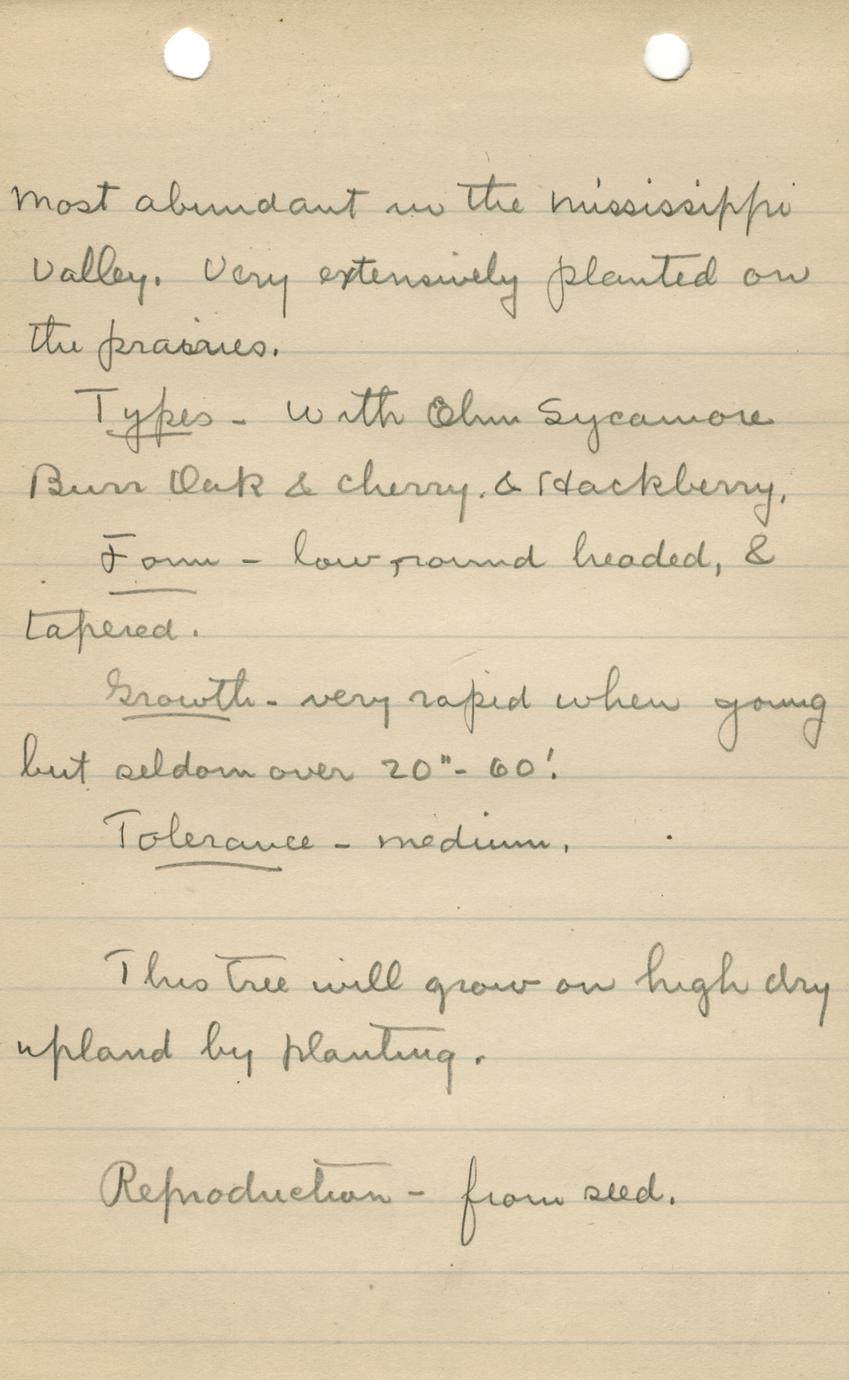 most abundant in the Mississippi
Valley. Very extensively planted on
the prairies.
Types - With Elm Sycamore
Burr Oak & cherry, & Hackberry,
Form - low, round headed, &
tapered.
Growth - very rapid when young
but seldom over 20"- 60'.
Tolerance - medium.
This tree will grow on high dry
upland by planting.
Reproduction - from seed.